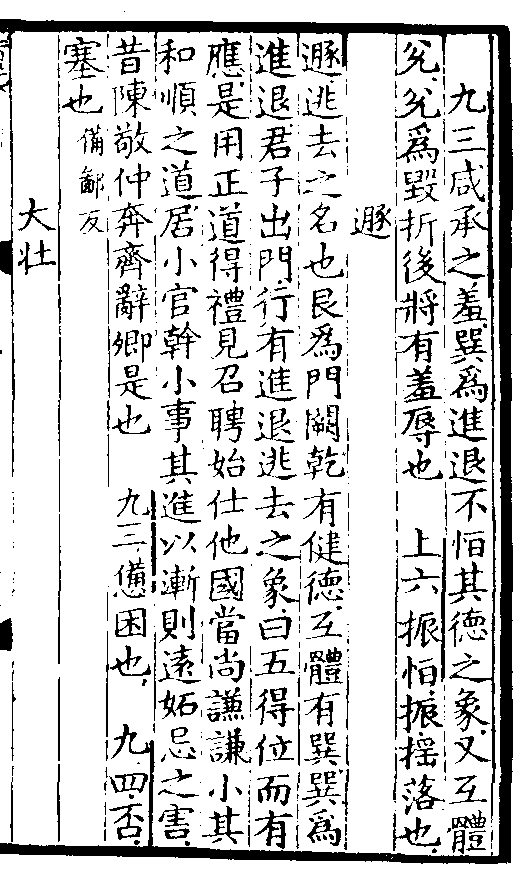 九三咸承之羞巽爲進退不恒其德之象又互體
兊兊爲毀折後將有羞辱也　上六振恒振搖落也
遯
遯逃去之名也艮爲門闕乾有健德互體有巽巽爲
進退君子出門行有進退逃去之象曰五得位而有
應是用正道得禮見召聘始仕他國當尚謙謙小其
和順之道居小官幹小事其進以漸則遠妬忌之害
昔陳敬仲奔齊辭卿是也　九三憊困也　九四否
塞也備鄙友
大壯